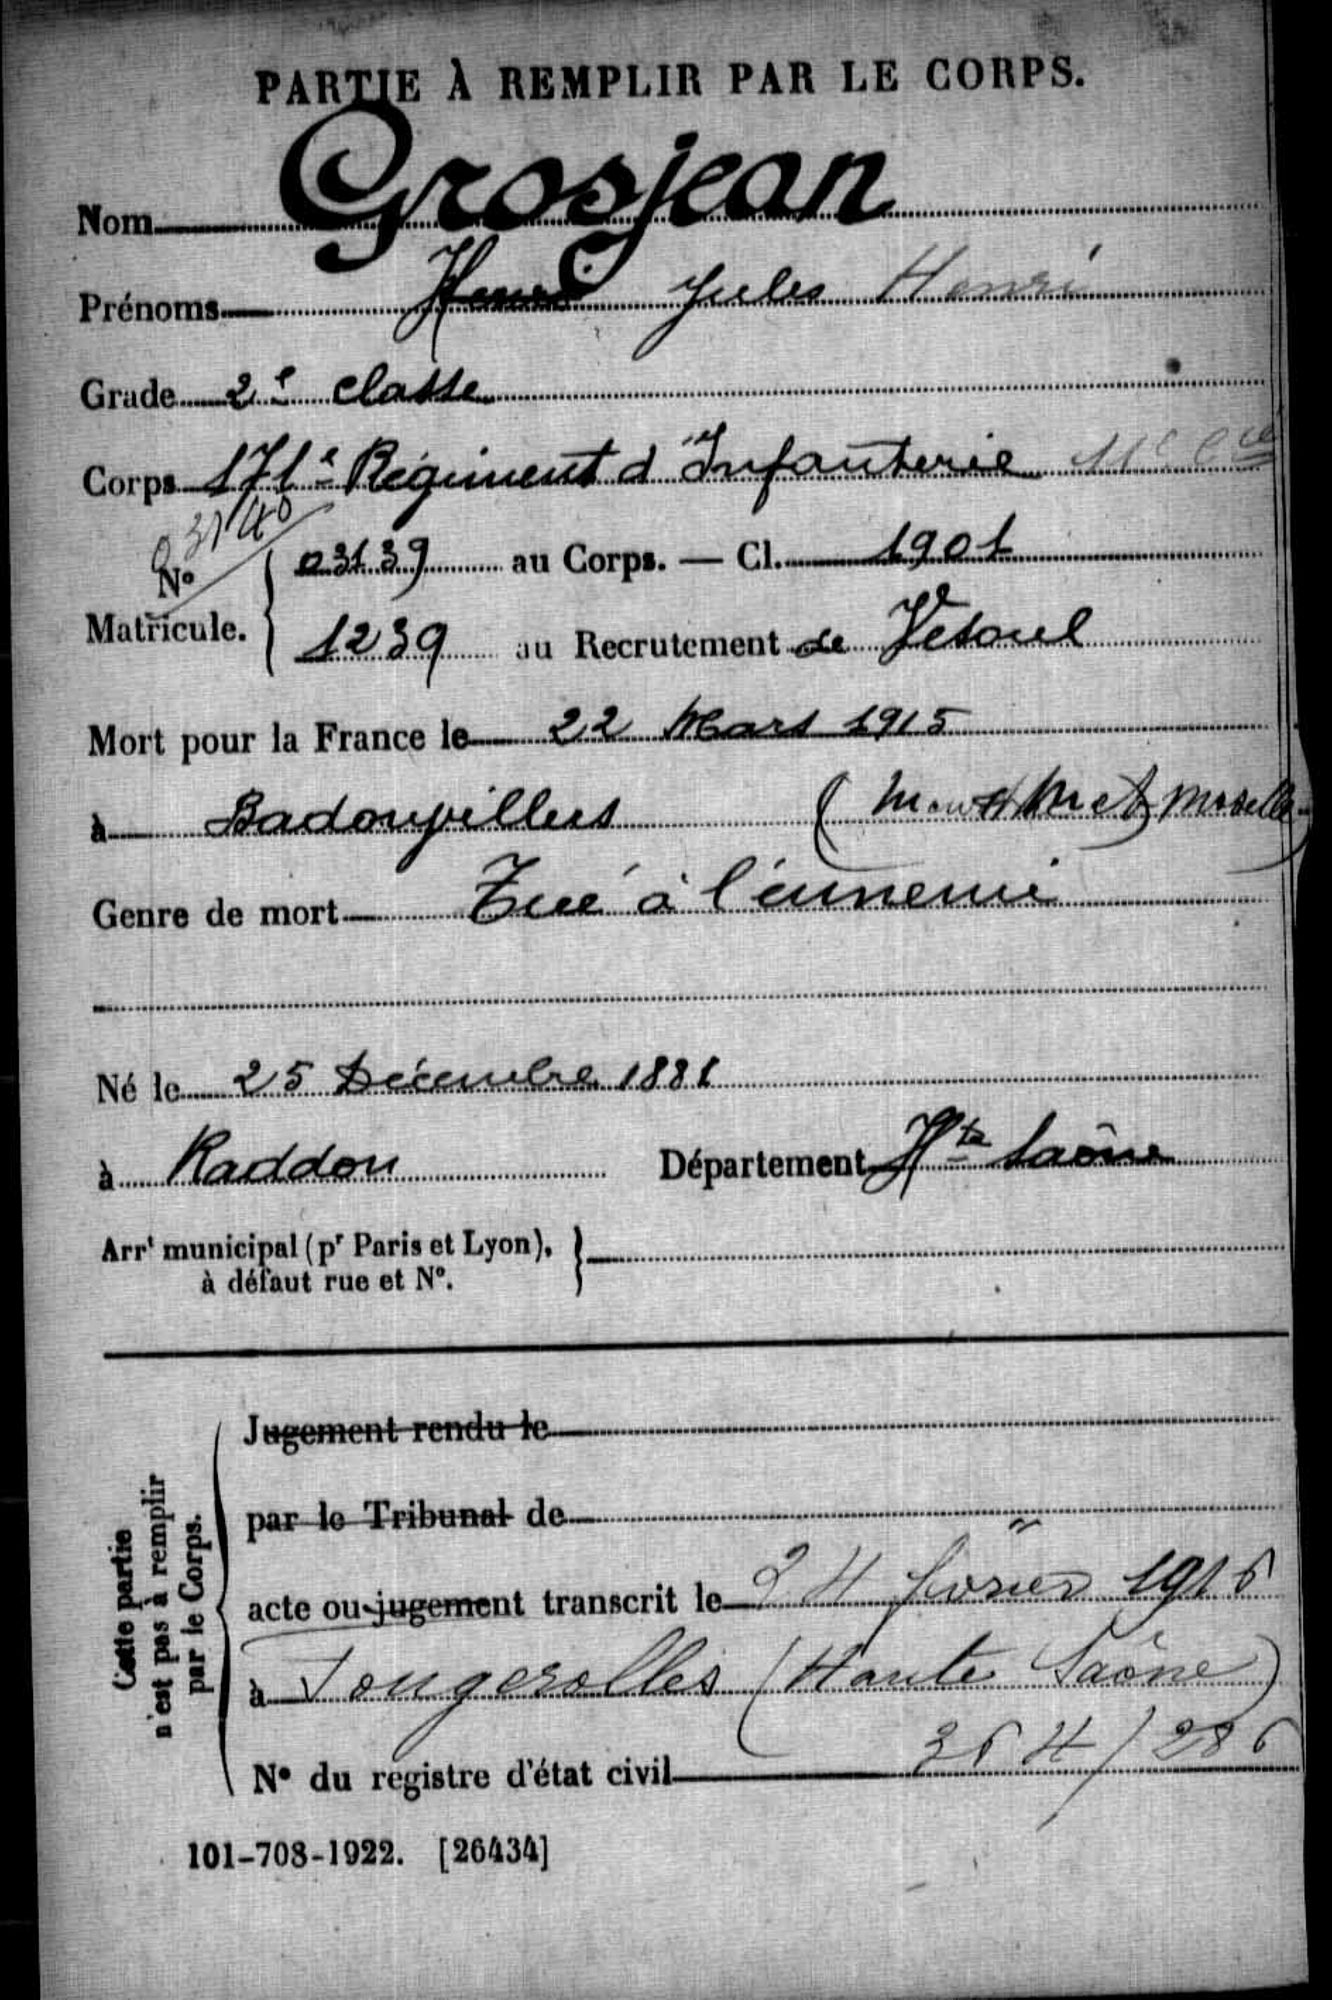 PARTIE À REMPLIR PAR LE CORPS.
Nom Grosjean
Prénoms Henri Jules Henri
Grade 2e classe
Corps 171e Régiment d'Infanterie 11e Cie
03140
No 03139 au Corps. — Cl. 1901
Matricule. 1239 au Recrutement de Vesoul
Mort pour la France le 22 Mars 1915
à Badonvillers (Meurthe et Moselle)
Genre de mort Tué à l'ennemi
Né le 25 Décembre 1881
à Raddon Département Hte Saône
Arrt municipal (pr Paris et Lyon),
à défaut rue et No.
Cette partie
n'est pas à remplir
par le Corps.
Jugement rendu le
par le Tribunal de
acte ou jugement transcrit le 24 février 1916
à Fougerolles (Haute Saône)
No du registre d'état civil 364/286
101-708-1922. [26434]